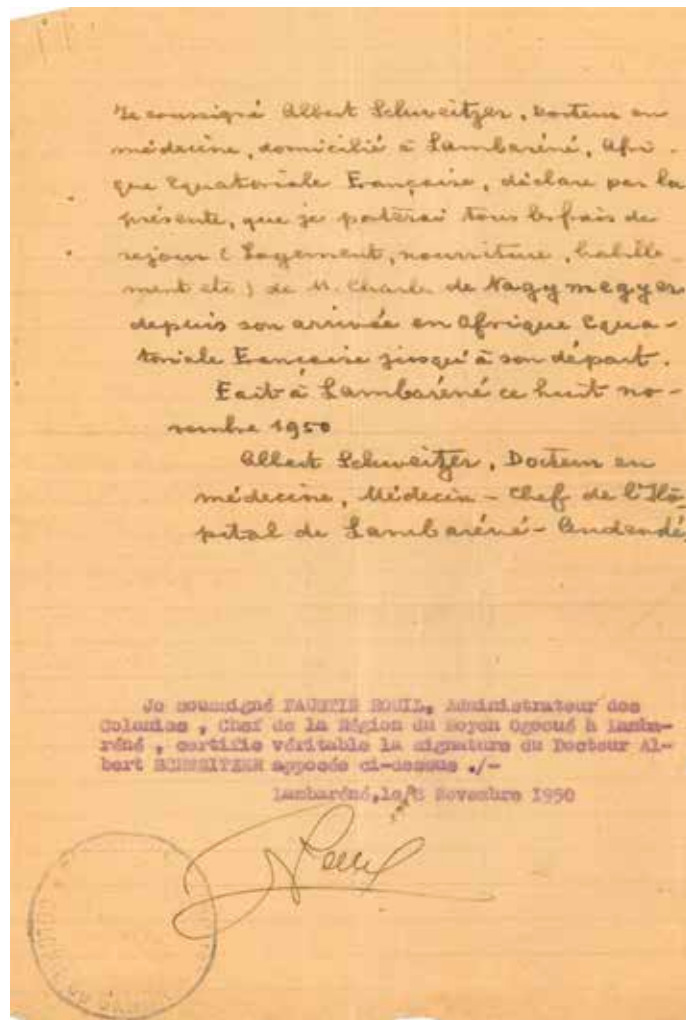 Je soussigné Albert Schweitzer, Docteur en
médecine, domicilié à Lambaréné, Afri-
que Equatoriale Française, déclare par la
présente, que je paterai tous les frais de
sejour (Logement, nourriture, habille-
ment etc) de M. Charle de Nagymegyer
depuis son arrivée en Afrique Equa-
toriale Française jusqu'à son départ.
Fait à Lambaréné ce huit no-
vembre 1950
Albert Schweitzer, Docteur en
médecine, Médecin-Chef de l'Hô-
pital de Lambaréné-Andendé,
Je soussigné FAUSTIN ROUIL, Administrateur des
Colonies , Chef de la Région du Moyen Ogooué à Lamba-
réné , certifie véritable la signature du Docteur Al-
bert SCHWEITZER apposée ci-dessus ./-
Lambaréné, le 8 Novembre 1950